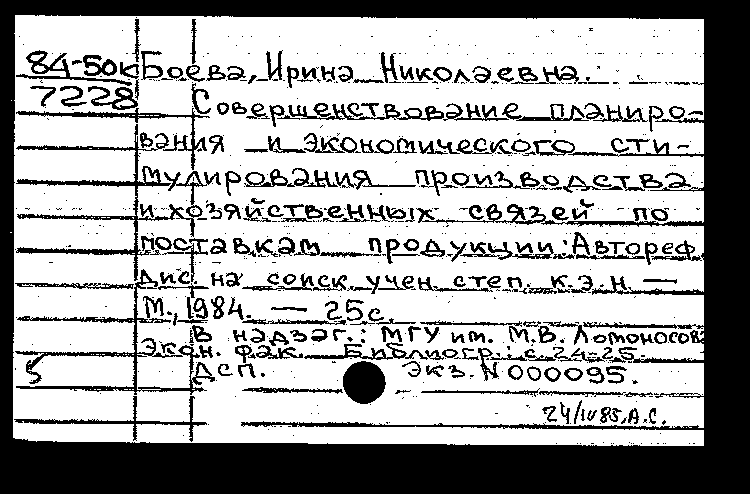 84-5ок Боева, Ирина Николаевна.
7228 Совершенствование планиро-
вания и экономического сти-
мулирования производства
и хозяйственных связей по
поставкам продукции: Автореф.
дис. на соиск. учен. степ. к.э.н. —
М., 1984. — 25с.
В надзаг.: МГУ им. М.В. Ломоносова
Экон. фак. Библиогр.: с. 24-25.
5 ДСП. Экз. N 000095.
24/IV 85. А.С.